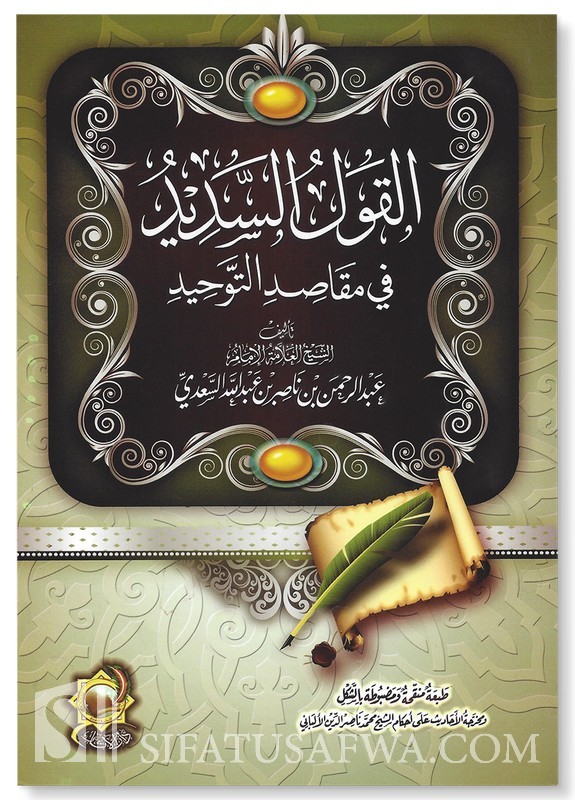 القَوْلُ السَّدِيدُ
في مقاصد التَّوْحِيدِ
تأليف
الشيخ العلامة الإمام
عبد الرحمن بن ناصر بن عبد الله السعدي
طبعة منقحة ومضبوطة بالشكل
ومخرجة الأحاديث على أحكام الشيخ محمد ناصر الدين الألباني
SIFATUSAFWA.COM